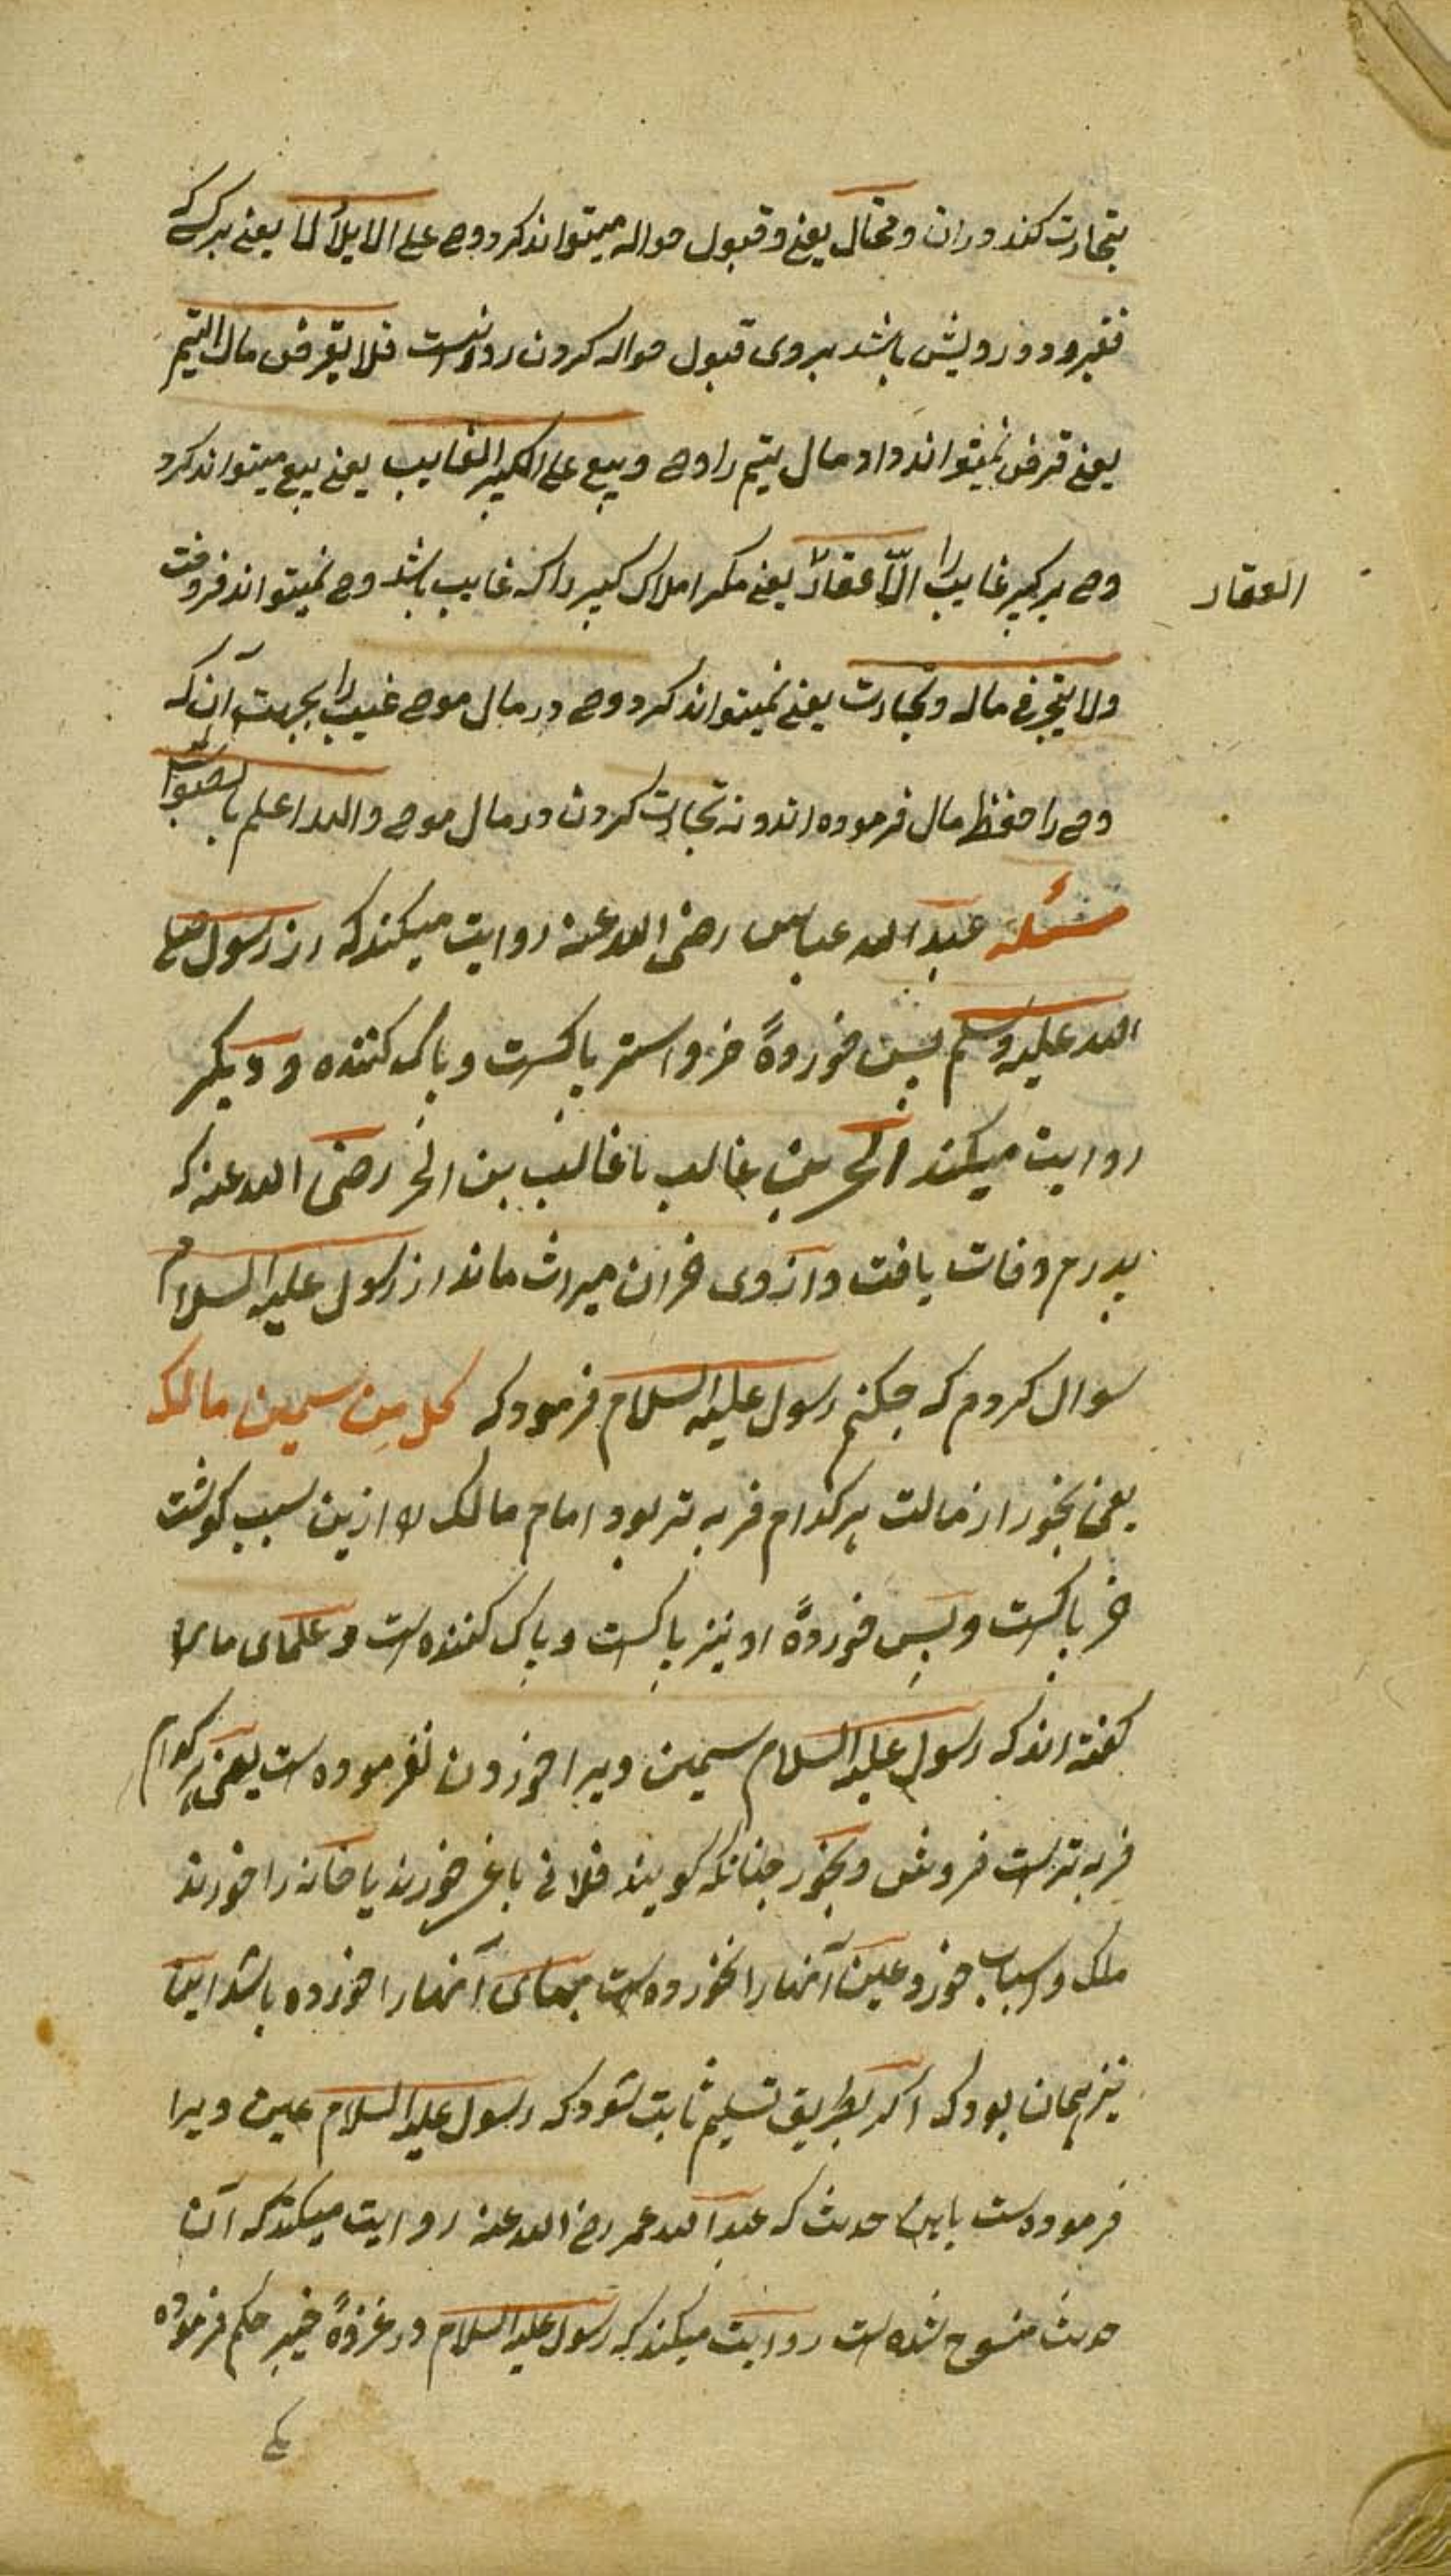 بتجارت کند دران و محتال یعنے و قبول حواله میتواند کرد وصے علے الاملأ لا یعنے هرکه
فقیر و درویش باشد بروی قبول حواله کردن روا نیست فلا یقرض مال الیتیم
یعنے قرض نمیتواند داد مال یتیم را وصے و یبیع علے الکبیر الغایب یعنے بیع میتواند کرد
وصے بر کبیر غایب را الّا عقارً یعنے مکر املاک کبیر را که غایب باشد وصے نمیتواند فروخت
العقار
ولا یتجر فے ماله و تجارت یعنے نمیتواند کرد وصے در مال موصے غیب را بجهت آن که
وصے را حفظ مال فرموده اند و نه تجارت کردن در مال موصے والله اعلم بالصواب
مسئله عبد الله عباس رضی الله عنه روایت میکند که از رسول صلے
الله علیه وسلم پس خوردهٔ خر و استر پاکست و پاک کننده و دیکر
روایت میکند الحر بن غالب یا غالب بن الحر رضی الله عنه که
پدرم وفات یافت و از وی خران میراث ماند از رسول علیه السلام
سوال کردم که جکنم رسول علیه السلام فرمود که کل مِن سمین مالک
یعنی بخور از مالت هر کدام فربه تر بود امام مالک را ازین سبب کوشت
خر پاکست و پسِ خوردهٔ او نیز پاکست و پاک کننده است و علمای ما را
کفته اند که رسول علیه السلام سمین ویرا خوردن نفرموده است یعنی هر کدام
فربه تر است فروش و بخور جنانکه کویند فلانی باغ خورند یا خانه را خورند
ملک و اسباب خورد عین آنها را نخورده است بهای آنها را خورده باشد اینا
نیز همان بود که اکر بطریق تسلیم ثابت شود که رسول علیه السلام عین ویرا
فرموده است باین حدیث که عبد الله عمر رضی الله عنه روایت میکند که آن
حدیث منسوخ شده است روایت میکند که رسول علیه السلام در غزوهٔ خیبر حکم فرموده